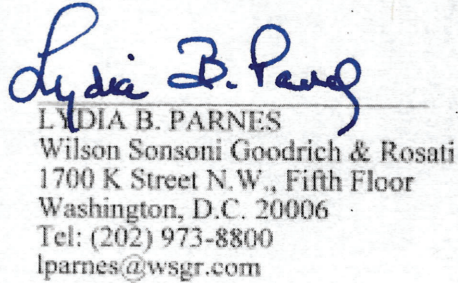 Lydia B. Parnes
LYDIA B. PARNES
Wilson Sonsoni Goodrich & Rosati
1700 K Street N.W., Fifth Floor
Washington, D.C. 20006
Tel: (202) 973-8800
lparnes@wsgr.com